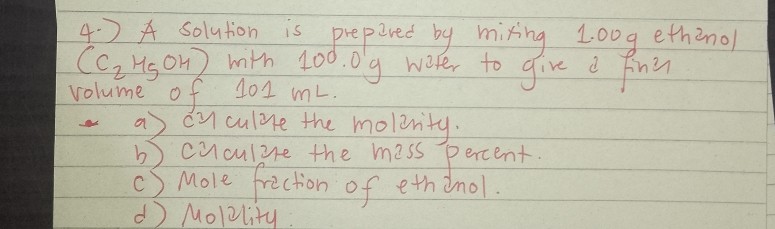 4.) A solution is prepared by mixing 1.00g ethanol
(C₂H₅OH) with 100.0g water to give a final
volume of 101 mL.
- a) calculate the molarity.
b) calculate the mass percent.
c) Mole fraction of ethanol.
d) Molality.